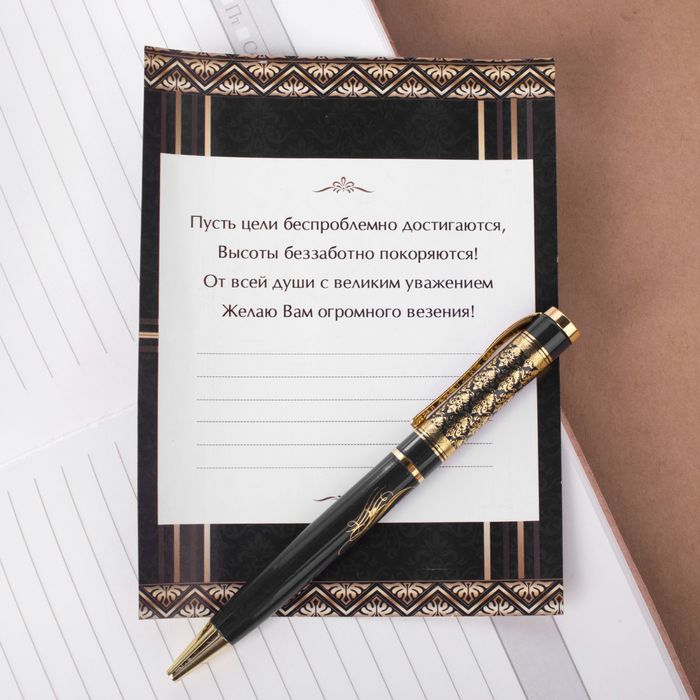 Пт
С
Пусть цели беспроблемно достигаются,
Высоты беззаботно покоряются!
От всей души с великим уважением
Желаю Вам огромного везения!